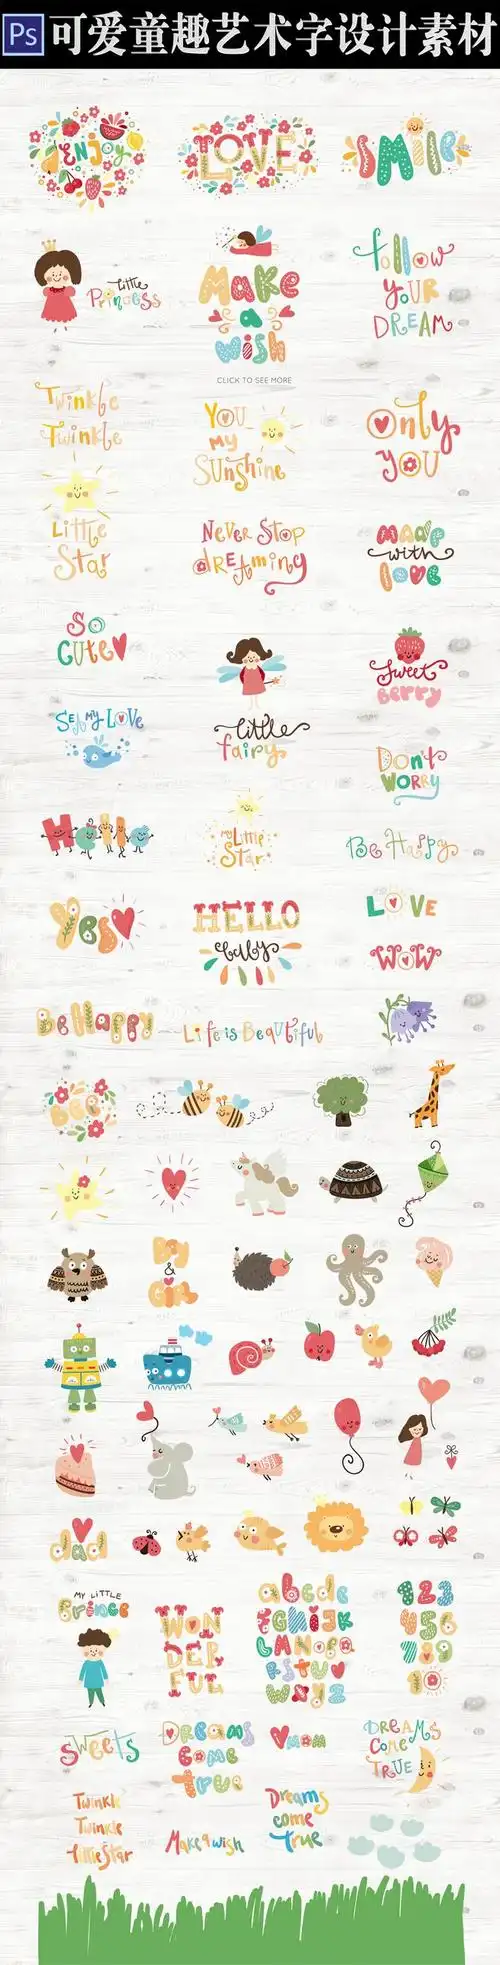 Ps 可爱童趣艺术字设计素材
ENJOY
LOVE
SMILE
little
Princess
Make
a
wish
follow
YOUR
DREAM
CLICK TO SEE MORE
Twinkle
Twinkle
Little
Star
YOU
my
Sunshine
Only
YOU
Never Stop
dreaming
Made
with
love
SO
CUTE
little
fairy
Sweet
Berry
SEA MY LOVE
Don't
WORRY
Hello
my Little
Star
Be Happy
Yes
HELLO
baby
LOVE
WOW
Be Happy
Life is Beautiful
Boy
&
Girl
dad
MY LITTLE
Prince
WON
DER
FUL
abcde
fghijk
lmnopq
rstuv
wxyz
123
456
789
0
SWEETS
Dreams
Come
True
mom
DREAMS
COME
TRUE
Twinkle
Twinkle
little Star
Make a wish
Dreams
come
true